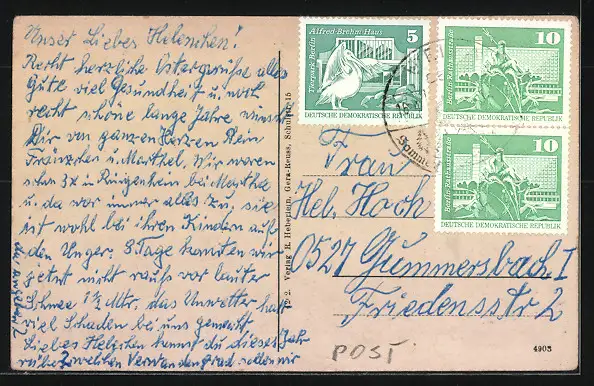 Unser Liebes Helenchen!
Recht herzliche Ostergrüsse alles
Gute viel Gesundheit u. noch
recht schöne lange Jahre wünscht
Dir von ganzen Herzen Dein
Fränzchen u. Marthel. Wir waren
schon 3x in bei Martha
u. da war immer alles zu, sie
ist wohl bei ihren Kindern auf
den Unger. 8 Tage konnten wir
jetzt nicht rauss vor lauter
Schnee 1½ Mtr. das Unwetter hat
viel Schaden bei uns gemacht.
Liebes Helenchen kannst du dieses Jahr
rüber? welchen Verwandengrad sollen wir
Verlag R. Heberlein, Gera-Reuss, Schulstr. 15
Alfred-Brehm-Haus
Tierpark Berlin
5
DEUTSCHE DEMOKRATISCHE REPUBLIK
Berlin, Rathausstraße
10
DEUTSCHE DEMOKRATISCHE REPUBLIK
Berlin, Rathausstraße
10
DEUTSCHE DEMOKRATISCHE REPUBLIK
Frau
Hel. Hoch
0527 Gummersbach I
Friedensstr 2
POST
4903